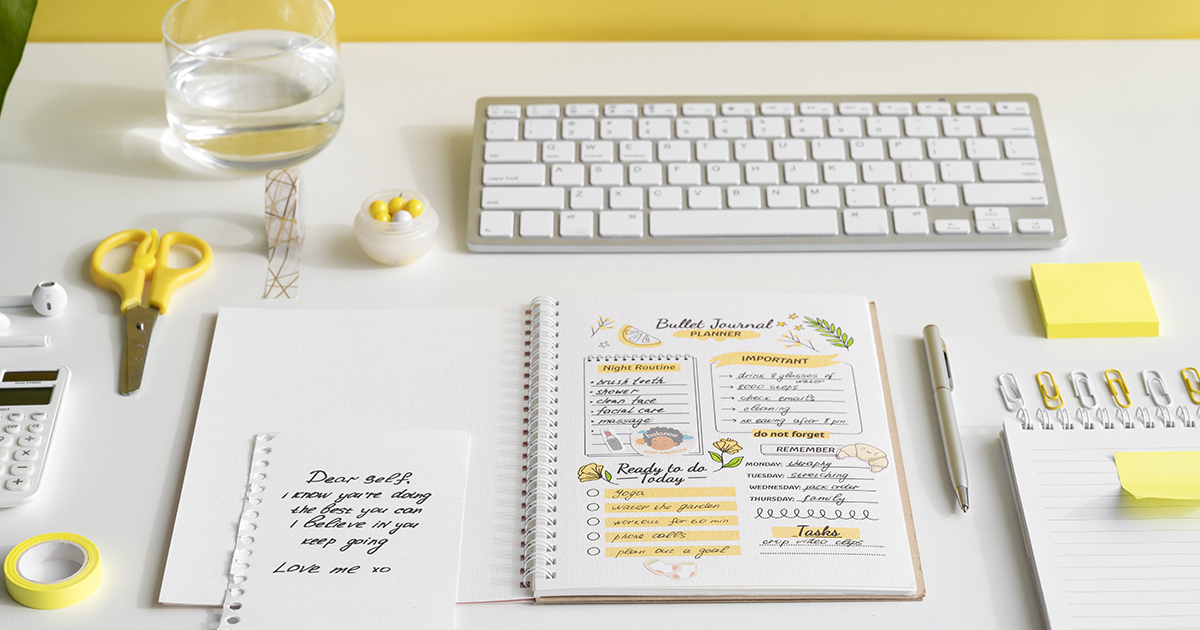 Q W E R T Y U I O P
A S D F G H J K L
caps lock
Z X C V B N M
Dear self,
I know you're doing
the best you can
I believe in you
keep going
Love me xo
Bullet Journal
PLANNER
Night Routine
• brush teeth
• shower
• clean face
• facial care
• massage
balance
IMPORTANT
→ drink 8 glasses of
water
→ 8000 steps
→ check emails
→ cleaning
→ no eating after 8 pm
do not forget
REMEMBER
MONDAY: theraphy
TUESDAY: stretching
WEDNESDAY: pack order
THURSDAY: family
Ready to do
Today
yoga
water the garden
workout for 60 min
phone calls
plan out a goal
Tasks
crop video clips